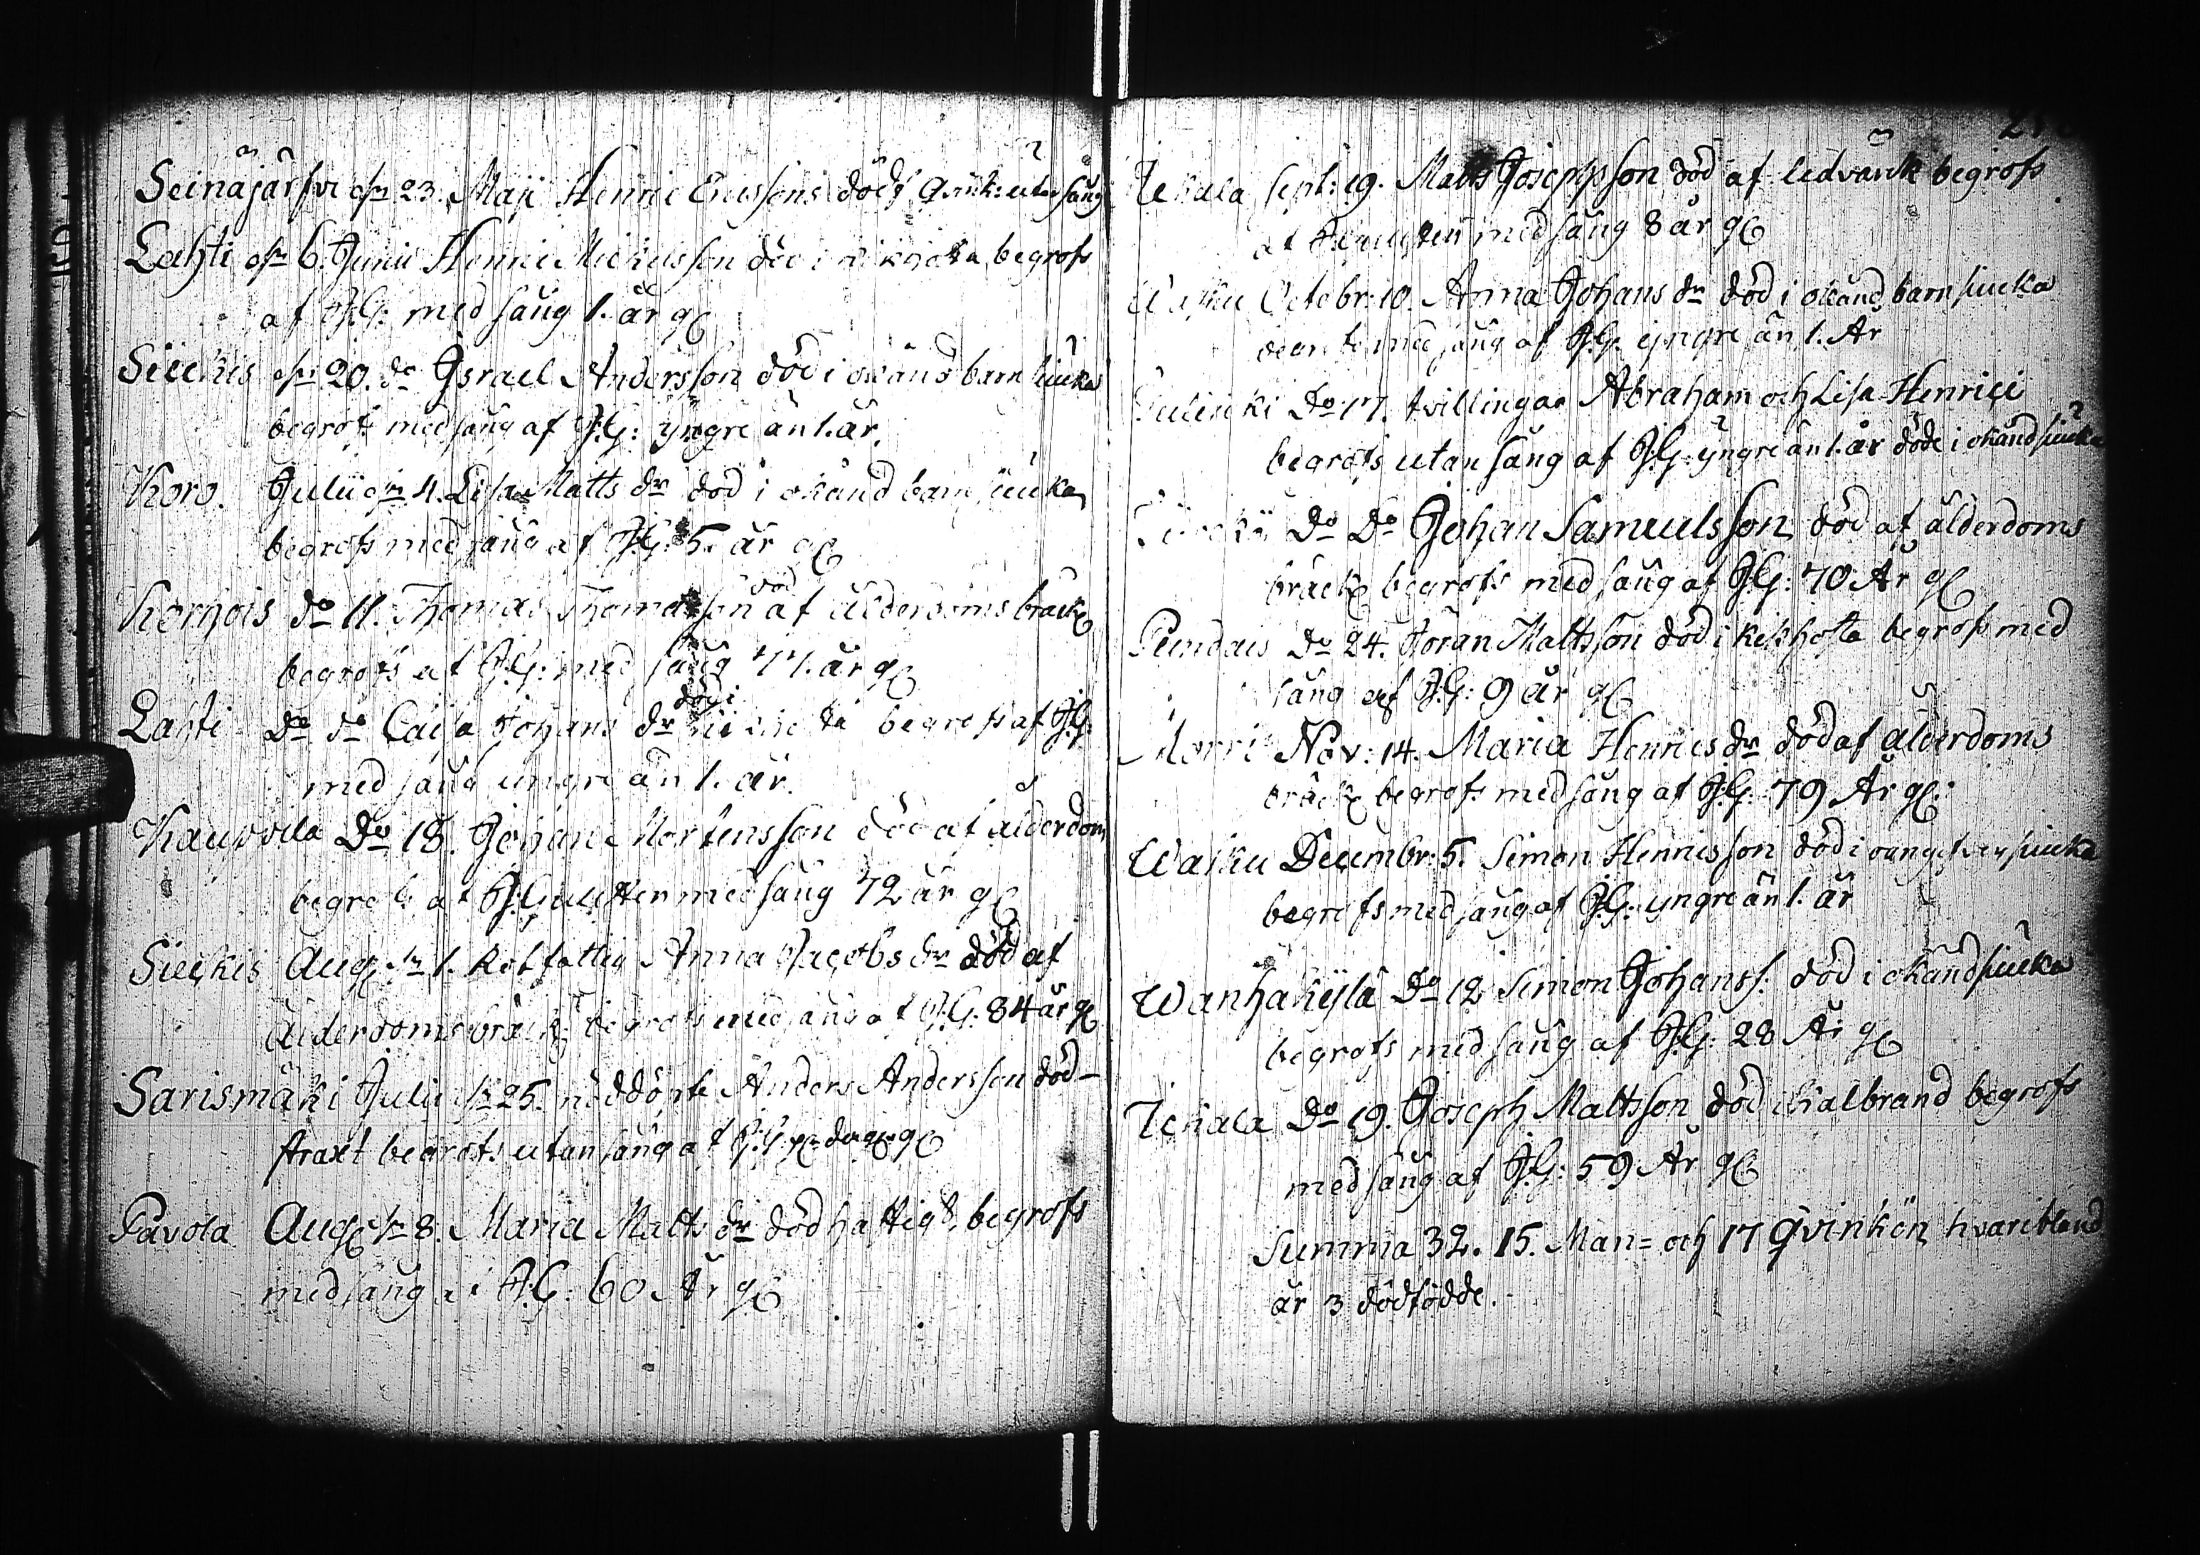 Seinäjärfvi d. 23. Maji Henric Ericssons dödf. utan sång
Lahti d. 6. Junii Henric Michelsson död i kikhosta begrofs
af J.G: med sång 1. år g.
Sieckis d. 20. do Israel Andersson död i okänd barn siucka
begrofs med sång af J.G: yngre än 1. år.
Koro. Julii d. 4. Lisa Matts dr död i okänd barn siucka
begrofs med sång af J.G: 5. år g.
Korhois do 11. Thomas Thomasson död af ålderdoms bräck.
begrofs af J.G: med sång år g.
Lahti do do Caisa Johans dr död i begrofs af J.G:
med sång yngre än 1. år.
Kauppila do 18. Johan Mortensson död af ålderdom
begrofs af med sång 72 år g.
Sieckis Aug. d. 1. Rotfattig Anna Jacobs dr död af
ålderdoms bräck. begrofs med sång af J.G: 84 år g.
Sarismäki Julii d. 25. nöddöpte Anders Andersson död
straxt begrofs utan sång af J.G.
Pavola Aug. d. 8. Maria Matts dr död hastigt, begrofs
med sång af J.G: 60 År g.
Tekala Sept: 19. Matts Josephsson död af ledvärk begrofs
af med sång 8 år g.
Wasku Octobr: 10. Anna Johans dr död i okänd barn siucka
med sång af J.G. yngre än 1. År
do 17. tvillingar Abraham och Lisa Henrici
begrofs utan sång af J.G: yngre än 1. år döde i okänd siucka
do do Johan Samuelsson död af ålderdoms
bräck. begrofs med sång af J.G: 70 År g.
do 24. Jöran Mattsson död i kikhosta begrofs med
sång af J.G: 9 år g.
Morri Nov: 14. Maria Henrics dr död af ålderdoms
bräck. begrofs med sång af J.G: 79 År g.
Wasku Decembr: 5. Simon Henricsson död i siucka
begrofs med sång af J.G: yngre än 1. år
Wanhakylä do 12 Simon Johanss. död i okänd siucka
begrofs med sång af J.G: 28 År g.
Tekala do 19. Joseph Mattsson död i kalbrand begrofs
med sång af J.G: 59 År g.
Summa 32. 15. Man= och 17 Qvinkön hvaribland
är 3 dödfödde.